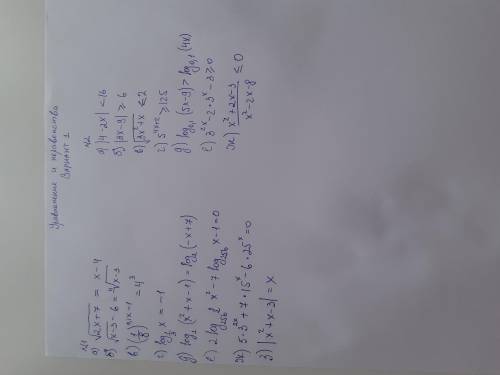 Уравнения и неравенства
Вариант 1.
№1
а) √(2x+7) = x-4
б) √(x-3) - 6 = ⁴√(x-3)
г) log_{1/3} x = -1
д) log₂ (x²+x-1) = log₂ (-x+7)
е) 2 log²₂₅₆ x² - 7 log₂₅₆ x - 1 = 0
ж) 5·3^{2x} + 7·15^x - 6·25^x = 0
з) |x²+x-3| = x
№2
а) |4-2x| < 16
б) |3x-9| ≥ 6
в) √(3x²+x) ≤ 2
г) 5^{4x+2} ≥ 125
д) log₀,₁ (5x-9) > log₀,₁ (4x)
е) 3^{2x} - 2·3^x - 3 ≥ 0
ж) (x²+2x-3)/(x²-2x-8) ≤ 0